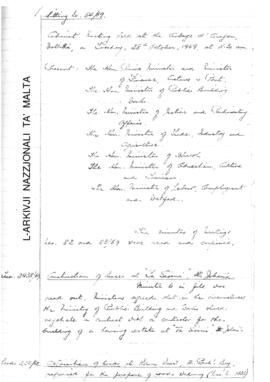 Sitting No. 84/69.
Cabinet Meeting held at the Auberge d'Aragon,
Valletta, on Tuesday, 28th October, 1969 at 9.30 a.m.
Present: The Hon. Prime Minister and Minister
of Finance, Customs & Port.
The Hon. Minister of Public Building
and Works
The Hon. Minister of Justice and Parliamentary
Affairs.
The Hon. Minister of Trade, Industry and
Agriculture.
The Hon. Minister of Health.
The Hon. Minister of Education, Culture
and Tourism
The Hon. Minister of Labour, Employment
and Welfare.
The minutes of meetings
Nos. 82 and 83/69 were read and confirmed.
Construction of houses at "Ta Sauni", St. Julian's
Minute 6 in file was
read out. Ministers agreed that in the circumstances
the Ministry of Public Building and Works should
negotiate a contract with a contractor for the
building of a housing estate at Ta Sauni St. Julian's
required for the purpose of works
L-ARKIVJI NAZZJONALI TA' MALTA